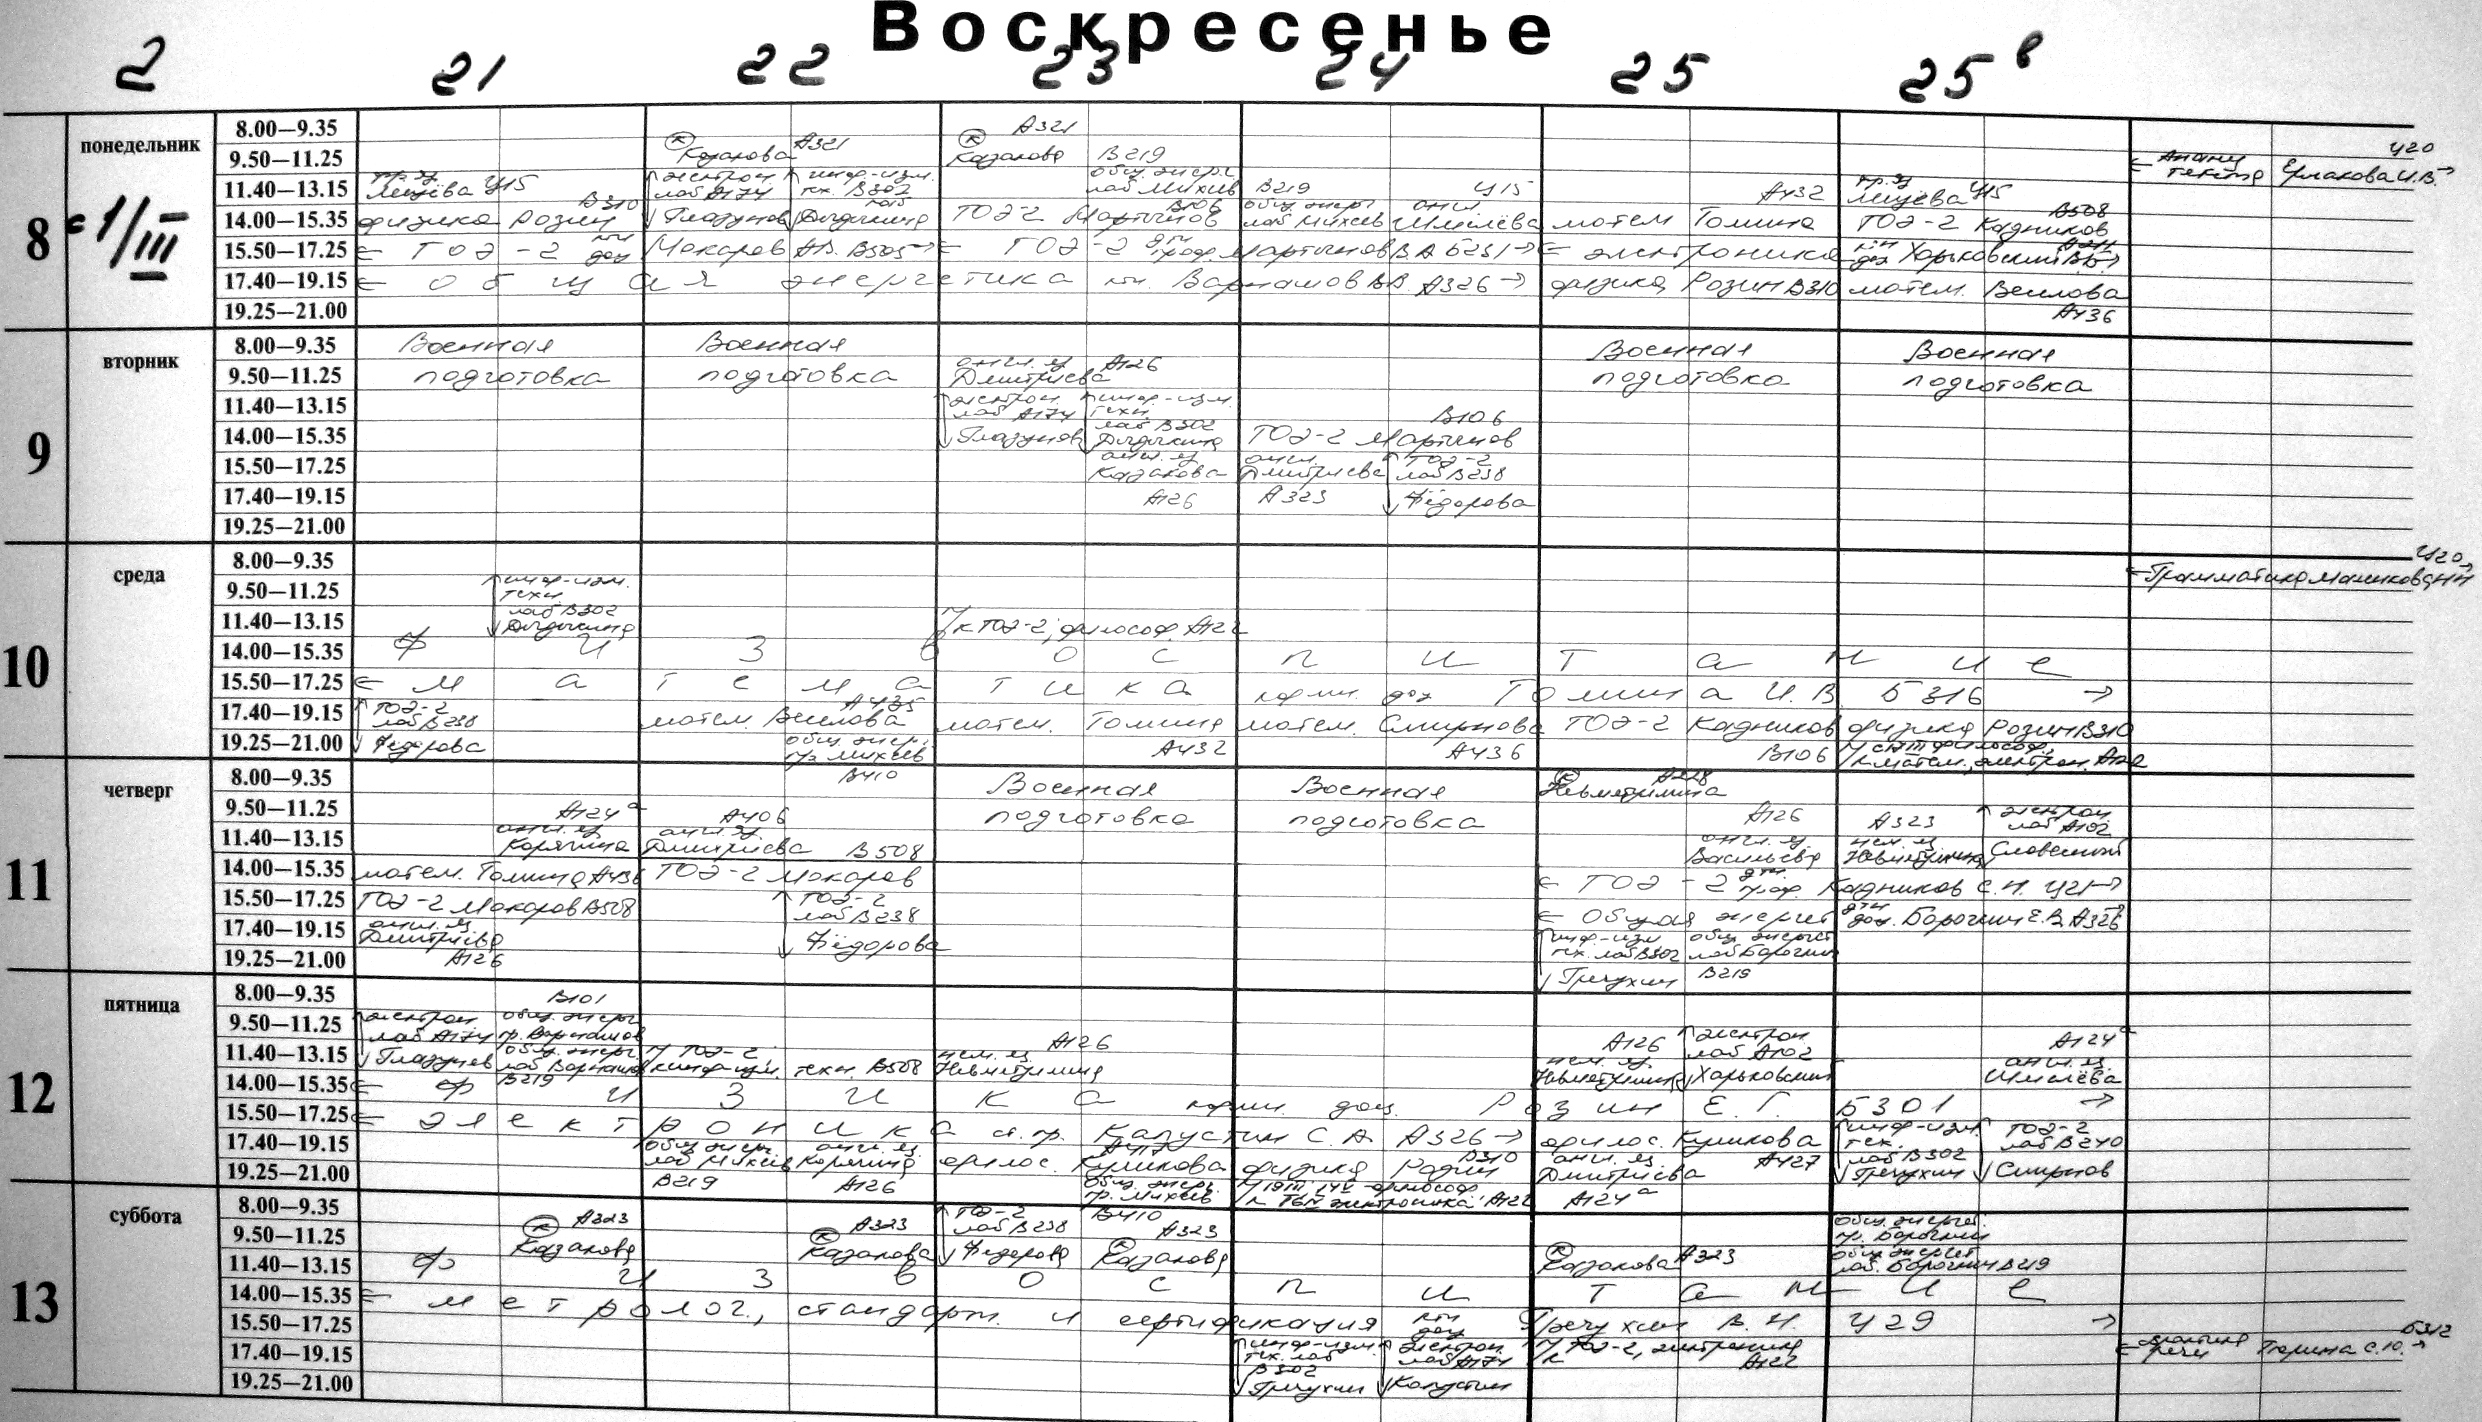 Воскресенье
2 21 22 23 24 25 25в
8 понедельник
1/III
8.00—9.35
А321
9.50—11.25 Казакова А321 Казакова В219
Ц20
Ермакова И.В.
11.40—13.15 Лещёва Ц15 электрон лаб А174 инф-изм. тех. В302 общ. энерг. лаб Михеев В219 Ц15 А432 Лещёва Ц15
В310 В106 В508
14.00—15.35 физика Розин Глазунов ТОЭ-2 Мартынов общ. энерг. лаб Михеев англ Шмелёва матем Томина ТОЭ-2 Кадников
15.50—17.25 ТОЭ-2 доц Макаров А.В. В505 ТОЭ-2 проф. Мартынов В А Б231 электроника Харьковский
17.40—19.15 общая энергетика Варнашов ВВ А326 физика Розин В310 матем. Веселова
19.25—21.00 А436
9 вторник
8.00—9.35 Военная Военная Военная Военная
9.50—11.25 подготовка подготовка англ. яз А126 Дмитриева подготовка подготовка
11.40—13.15 электрон. лаб А174 инф-изм. техн. лаб В302 В106
14.00—15.35 Глазунов ТОЭ-2 Мартынов
15.50—17.25 англ. яз Казакова англ. Дмитриева ТОЭ-2 лаб В238
17.40—19.15 А126 А323 Фёдорова
19.25—21.00
10 среда
8.00—9.35
Ц20
9.50—11.25 инф-изм. техн. лаб В302 Грамматика
11.40—13.15 ТОЭ-2, философ. А122
14.00—15.35 Физвоспитание
15.50—17.25 математика доц Томина И.В Б316
17.40—19.15 ТОЭ-2 лаб В238 матем. Веселова матем. Томина матем. Смирнова ТОЭ-2 Кадников физика Розин В310
19.25—21.00 Фёдорова общ. энерг. Михеев А432 А436 В106
11 четверг
8.00—9.35 В410 Военная Военная
9.50—11.25 А124а А406 подготовка подготовка А126 А323 электрон лаб А102
11.40—13.15 англ. яз Корягина англ. яз. Дмитриева В508 англ. яз. Васильева нем. яз.
14.00—15.35 матем. Томина А436 ТОЭ-2 Макаров ТОЭ-2 проф. Кадников С.Н. Ц21
15.50—17.25 ТОЭ-2 Макаров В508 ТОЭ-2 лаб В238 Общая энергет доц. Барочкин Е.В. А326
17.40—19.15 англ. яз Дмитриева Фёдорова инф-изм тех. лаб В302 общ. энергет лаб Барочкин
19.25—21.00 А126 Гречухин В219
12 пятница
8.00—9.35 В101
9.50—11.25 электрон лаб А174 общ. энерг пр. Варнашов А126 А126 электрон лаб А102 А124а
11.40—13.15 Глазунов общ. энерг. лаб Варнашов ТОЭ-2, инф-изм. техн. В508 нем. яз. нем. яз. Харьковский англ. яз. Шмелёва
14.00—15.35 В219 физика доц. Розин Е.Г. Б301
15.50—17.25 электроника ст. пр. Капустин С.А. А326 филос. Куликова инф-изм. тех. лаб В302 ТОЭ-2 лаб В240
17.40—19.15 общ. энерг. лаб Михеев англ. яз. Корягина филос. Куликова физика Розин В310 англ. яз. Дмитриева А427 Гречухин Смирнов
19.25—21.00 В219 А126 общ. энерг. пр. Михеев электроника А122 А124а
13 суббота
8.00—9.35 А323 А323 ТОЭ-2 лаб В238 В410 А323 общ. энергет. пр. Барочкин
9.50—11.25 Казакова Казакова Фёдорова Казакова Казакова А323 общ. энергет лаб. Барочкин В219
11.40—13.15 Физвоспитание
14.00—15.35 метролог., стандарт. и сертификация доц Гречухин В.Н. Ц29
15.50—17.25
17.40—19.15 инф-изм. тех. лаб В302 электрон. лаб А174 ТОЭ-2, электроника А122 речи Тюрина С.Ю. Б312
19.25—21.00 Гречухин Капустин